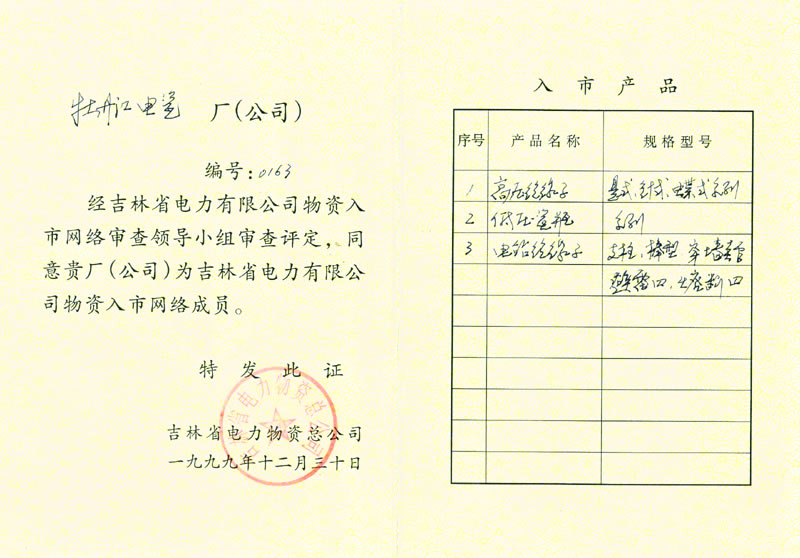 牡丹江电瓷 厂(公司)
编号:0163
经吉林省电力有限公司物资入
市网络审查领导小组审查评定，同
意贵厂(公司)为吉林省电力有限公
司物资入市网络成员。
特发此证
吉林省电力物资总公司
一九九九年十二月三十日
吉林省电力物资总公司
入市产品
序号 产品名称 规格型号
1 高压绝缘子 悬式、针式、蝶式系列
2 低压瓷瓶 系列
3 电站绝缘子 支柱、棒型 穿墙套管